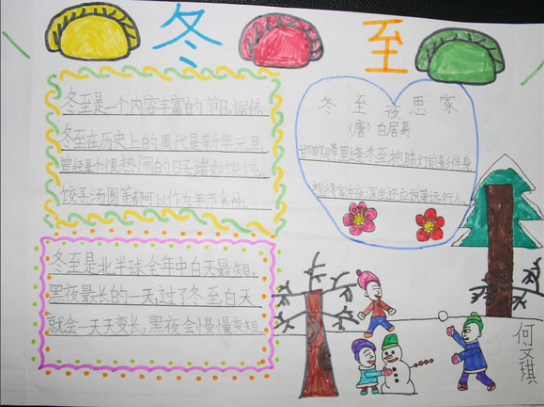 冬至
冬至是一个内容丰富的节日,据传,
冬至在历史上的周代是新年元旦,
曾经是个很热闹的日子,
饺子汤圆等都可以作为年节食用。
冬至夜思家
(唐)白居易
邯郸驿里逢冬至,抱膝灯前影伴身。
想得家中夜深坐,还应说着远行人。
冬至是北半球全年中白天最短,
黑夜最长的一天,过了冬至,白天
就会一天天变长,黑夜会慢慢变短。
何文琪